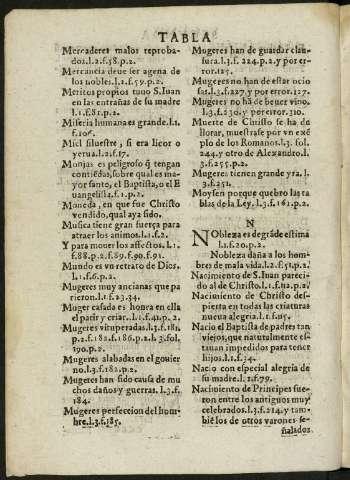 TABLA
Mercaderes malos reproba-
dos.l.2.f.58.p.2.
Mercancia deue ser agena de
los nobles.l.2.f.59.p.2.
Meritos propios tuuo S.Iuan
en las entrañas de su madre
l.1.f.81.p.2.
Miseria humana es grande.l.1.
f.106.
Miel siluestre, si era licor o
yerua.l.2.f.17.
Monjas es peligroso q̃ tengan
contiẽdas, sobre qual es ma-
yor santo, el Baptista, o el E
uangelista.f.1.p.2.
Moneda, en que fue Christo
vendido, qual aya sido.
Musica tiene gran fuerça para
atraer los animos.l.1.f.2.
Y para mouer los affectos.l.1.
f.88.p.2.f.89.f.90.f.91.
Mundo es vn retrato de Dios.
l.1.f.6.p.2.
Mugeres muy ancianas que pa
rieron.l.1.f.23.34.
Muger casada es honra en ella
el parir y criar.l.1.f.41.p.2.
Mugeres vituperadas.l.3.f.181.
p.2.f.182.f.186.p.2.l.3.fol.
190.p.2.
Mugeres alabadas en el gouier
no.l.3.f.182.p.2.
Mugeres han sido causa de mu
chos daños y guerras.l.3.f.
184.
Mugeres perfeccion del hom-
bre.l.3.f.185.
Mugeres han de guardar clau-
sura.l.3.f.224.p.2.y por er-
ror.125.
Mugeres no han de estar ocio
sas.l.3.f.227.y por error.127.
Mugeres no hã de beuer vino.
l.3.f.230.y por error.310.
Muerte de Christo se ha de
llorar, muestrase por vn exẽ
plo de los Romanos.l.3.fol.
244.y otro de Alexandro.l.
3.f.255.p.2.
Mugeres tienen grande yra.l.
3.f.251.
Moysen porque quebro las ta
blas de la Ley.l.3.f.161.p.2.
N
Nobleza es de grãde estima
l.1.f.20.p.2.
Nobleza daña a los hom
bres de mala vida.l.2.f.51.p.2.
Nacimiento de S.Iuan pareci-
do al de Christo.l.1.f.112.p.2.
Nacimiento de Christo des-
pierta en todas las criaturas
nueua alegria.l.1.f.115.
Nacio el Baptista de padres tan
viejos, que naturalmente es-
tauan impedidos para tener
hijos.l.1.f.34.
Nacio con especial alegria de
su madre.l.2.f.79.
Nacimiento de Principes fue-
ron entre los antiguos muy
celebrados.l.3.f.214.y tam-
biẽ los de otros varones se-
ñalados